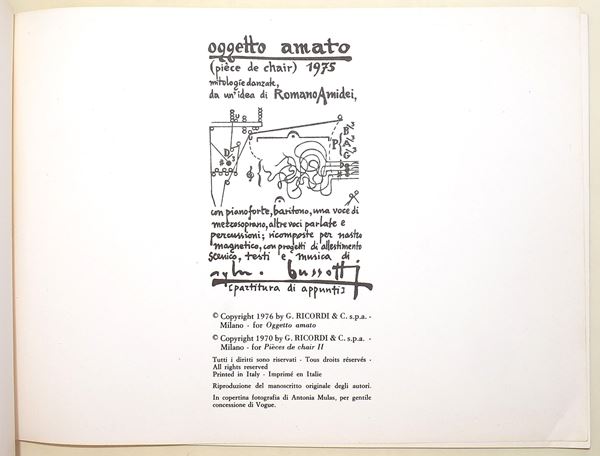 oggetto amato
(pièce de chair) 1975
mitologie danzate,
da un'idea di Romano Amidei,
D
P
B
A
G
con pianoforte, baritono, una voce di
mezzosoprano, altre voci parlate e
percussioni; ricomposte per nastro
magnetico, con progetti di allestimento
scenico, testi e musica di
sylvano bussotti
[partitura di appunti]
© Copyright 1976 by G. RICORDI & C. s.p.a. -
Milano - for Oggetto amato
© Copyright 1970 by G. RICORDI & C. s.p.a. -
Milano - for Pièces de chair II
Tutti i diritti sono riservati - Tous droits réservés -
All rights reserved
Printed in Italy - Imprimé en Italie
Riproduzione del manoscritto originale degli autori.
In copertina fotografia di Antonia Mulas, per gentile
concessione di Vogue.